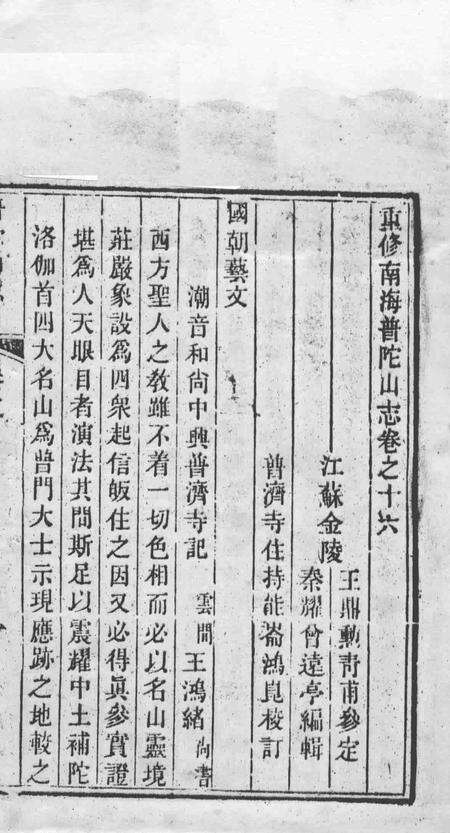 重修南海普陀山志卷之十六
江蘇金陵
王鼎勳靑甫參定
秦耀曾遠亭編輯
普濟寺住持能崙鴻崑校訂
國朝藝文
潮音和尙中興普濟寺記 雲間 王鴻緒 尙書
西方聖人之敎雖不着一切色相而必以名山靈境
莊嚴象設爲四衆起信皈住之因又必得眞參實證
堪爲人天眼目者演法其間斯足以震耀中土補陀
洛伽首四大名山爲普門大士示現應跡之地較之